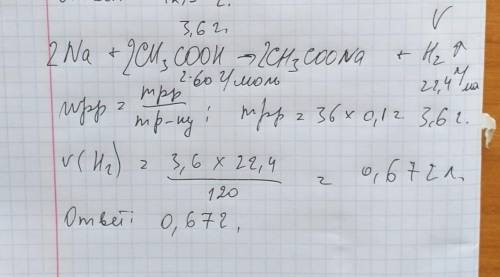 3,6 г.
V
2Na + 2CH₃COOH → 2CH₃COONa + H₂ ↑
2·60 г/моль
22,4
mpp = 36 × 0,1 = 3,6 г.
V(H₂) = 3,6 × 22,4 / 120 = 0,672 л.
Ответ: 0,672,